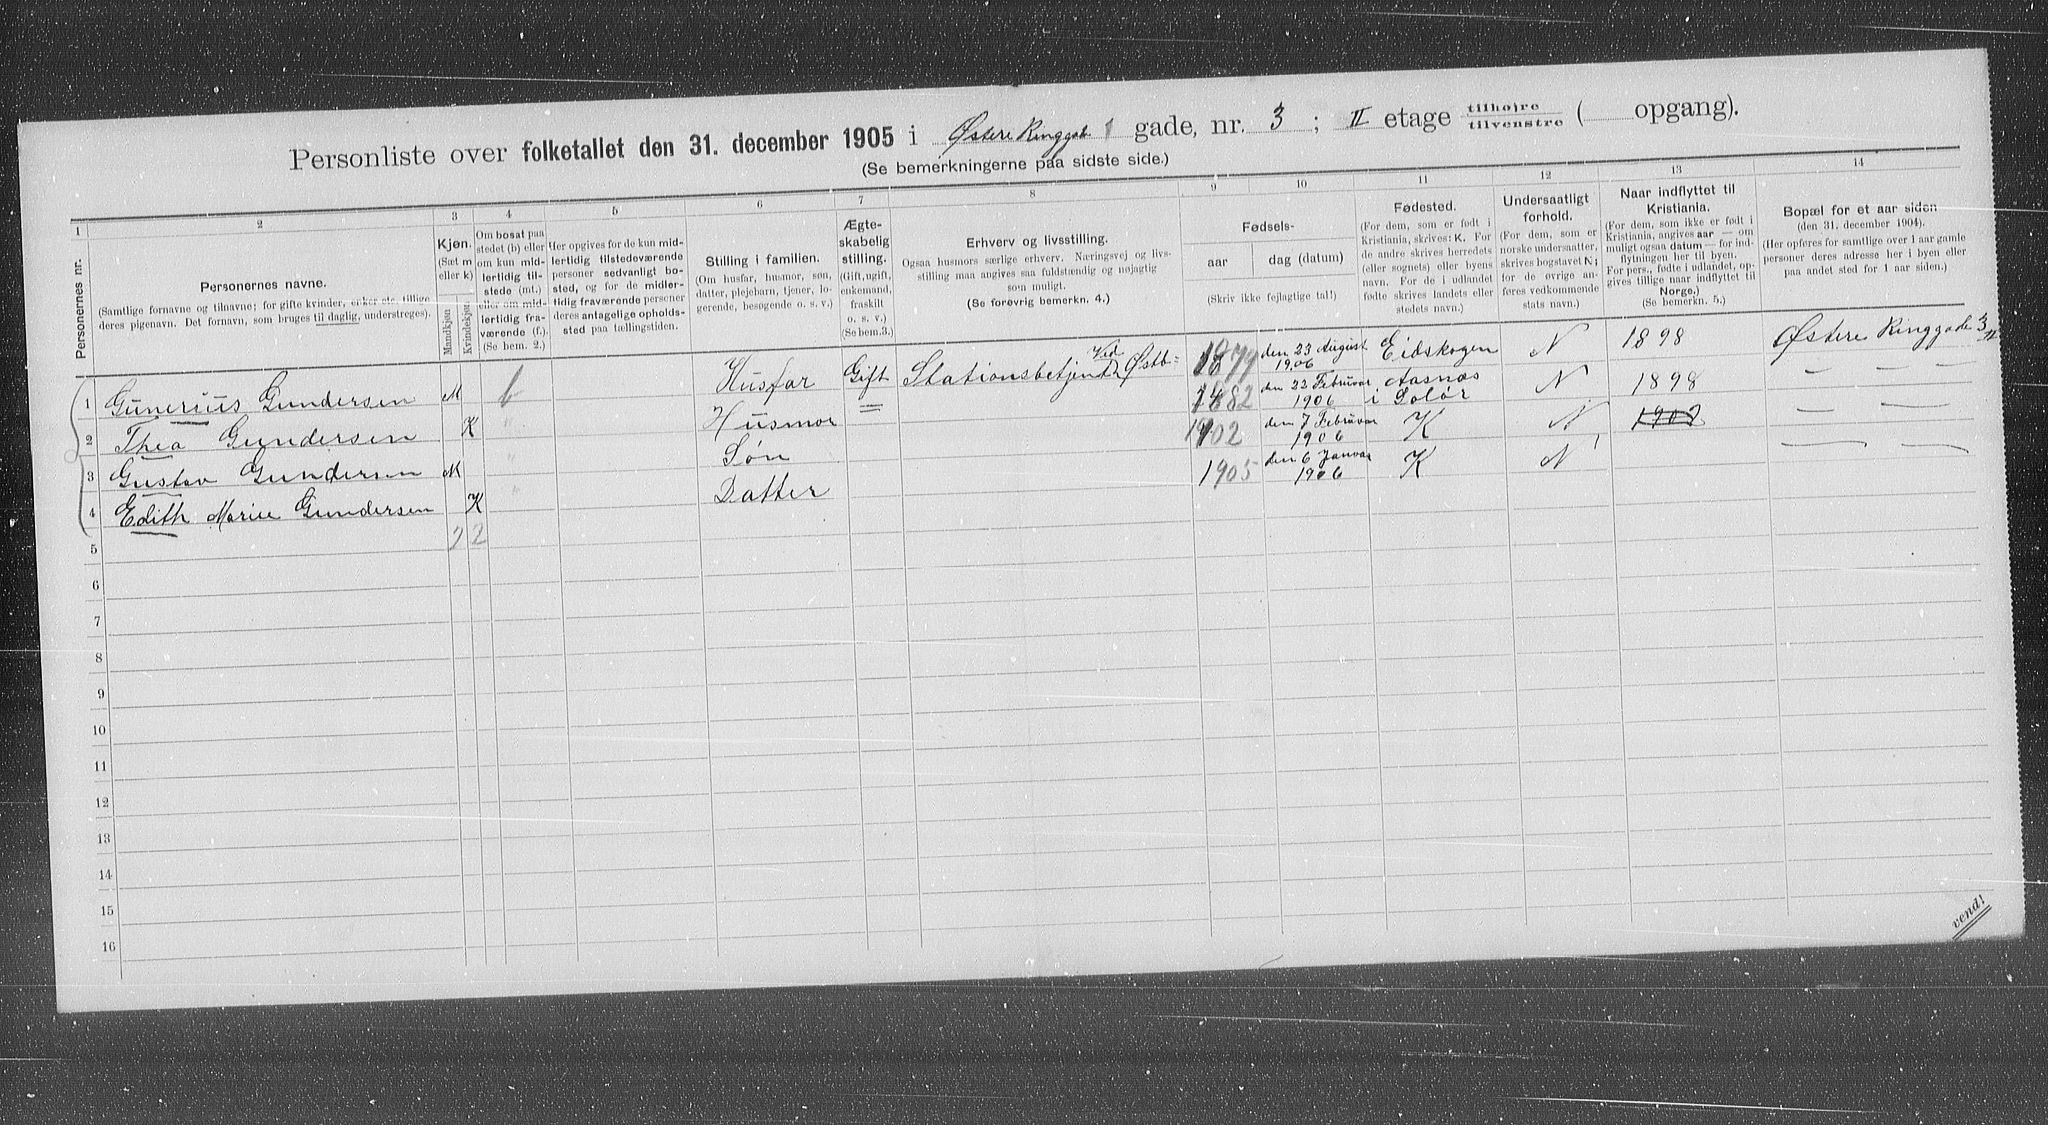 Personliste over folketallet den 31. december 1905 i Østere Ringgade gade, nr. 3 ; II etage tilhøjre tilvenstre ( opgang).
(Se bemerkningerne paa sidste side.)
1 2 3 4 5 6 7 8 9 10 11 12 13 14
Personernes nr.
Personernes navne.
(Samtlige fornavne og tilnavne; for gifte kvinder, enker etc. tillige
deres pigenavn. Det fornavn, som bruges til daglig, understreges).
Kjøn.
(Sæt m
eller k)
Mandkjøn
Kvindekjøn
Om bosat paa
stedet (b) eller
om kun mid-
lertidig til-
stede (mt.)
eller om mid-
lertidig fra-
værende (f.)
(Se bem. 2.)
Her opgives for de kun mid-
lertidig tilstedeværende
personer sedvanligt bo-
sted, og for de midler-
tidig fraværende personer
deres antagelige opholds-
sted paa tællingstiden.
Stilling i familien.
(Om husfar, husmor, søn,
datter, plejebarn, tjener, lo-
gerende, besøgende o. s. v.)
Ægte-
skabelig
stilling.
(Gift, ugift,
enkemand,
fraskilt
o. s. v.)
(Se bem.3.)
Erhverv og livsstilling.
Ogsaa husmors særlige erhverv. Næringsvej og livs-
stilling maa angives saa fuldstændig og nøjagtig
som muligt.
(Se forøvrig bemerkn. 4.)
Fødsels-
aar dag (datum)
(Skriv ikke fejlagtige tal!)
Fødested.
(For dem, som er født i
Kristiania, skrives: K. For
de andre skrives herredets
(eller sognets) eller byens
navn. For de i udlandet
fødte skrives landets eller
stedets navn.)
Undersaatligt
forhold.
(For dem, som er
norske undersaatter,
skrives bogstavet N;
for de øvrige an-
føres vedkommende
stats navn.)
Naar indflyttet til
Kristiania.
(For dem, som ikke er født i
Kristiania, angives aar — om
muligt ogsaa datum — for ind-
flytningen her til byen.
For pers., fødte i udlandet, op-
gives tillige naar indflyttet til
Norge.)
(Se bemerkn. 5.)
Bopæl for et aar siden
(den 31. december 1904).
(Her opføres for samtlige over 1 aar gamle
personer deres adresse her i byen eller
paa andet sted for 1 aar siden.)
1 Gunerius Gundersen M b Husfar Gift Stationsbetjent Ved Østb= den 23 August 1906 Eidskogen N 1898 Østere Ringgade 3 II
2 Thea Gundersen K " Husmor = 1882 den 22 Februar 1906 Aasnæs i Solør N 1898 — — —
3 Gustav Gundersen M " Søn 1902 den 7 Februar 1906 K N 1902 — —
4 Edith Marie Gundersen K " Datter 1905 den 6 Januar 1906 K N — —
5 2 2
6
7
8
9
10
11
12
13
14
15
16
vend!